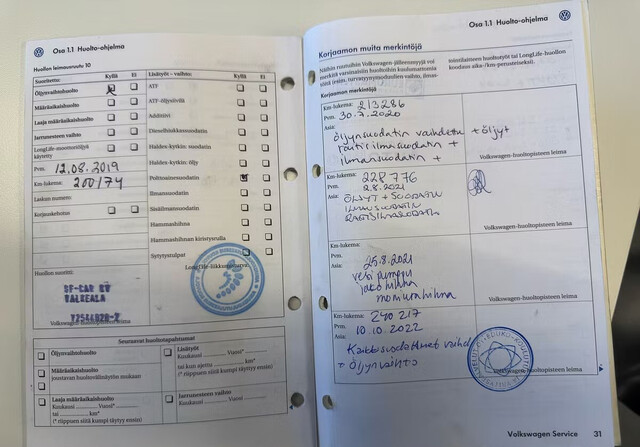 Osa 1.1 Huolto-ohjelma
Huollon leimausruutu 10
Suoritettu: Kyllä Ei
Öljynvaihtohuolto
Määräaikaishuolto
Laaja määräaikaishuolto
Jarrunesteen vaihto
LongLife-moottoriöljyä
käytetty
Pvm: 12.08.2019
Km-lukema: 200174
Laskun numero:
Korjauskehotus
Huollon suoritti:
SF-CAR OY
VALKEALA
Volkswagen-huoltopisteen leima
Lisätyöt - vaihto: Kyllä Ei
ATF
ATF-öljysiivilä
Additiivi
Dieselhiukkassuodatin
Haldex-kytkin: suodatin
Haldex-kytkin: öljy
Polttoainesuodatin
Ilmansuodatin
Sisäilmansuodatin
Hammashihna
Hammashihnan kiristysrulla
Sytytystulpat
Seuraavat huoltotapahtumat
Öljynvaihtohuolto
Määräaikaishuolto
joustavan huoltovälinäytön mukaan
Laaja määräaikaishuolto
Kuukausi Vuosi*
tai km*
(* riippuen siitä kumpi täyttyy ensin)
Lisätyöt
Kuukausi Vuosi*
tai kun ajettu km*
(* riippuen siitä kumpi täyttyy ensin)
Jarrunesteen vaihto
Kuukausi Vuosi
Osa 1.1 Huolto-ohjelma
Korjaamon muita merkintöjä
Korjaamon merkintöjä
Km-lukema: 213286
Pvm. 30.7.2020
Asia:
öljynsuodatin vaihdettu + öljyt
raitisilmasuodatin +
ilmansuodatin +
Volkswagen-huoltopisteen leima
Km-lukema: 228 776
Pvm. 2.8.2021
Asia: ÖLJYT + SUODATIN
ILMANSUODATIN
RAITISILMASUODATIN
Volkswagen-huoltopisteen leima
Km-lukema:
Pvm.
Asia: 25.8.2021
vesipumppu
jakohihna
moniurahihna
Volkswagen-huoltopisteen leima
Km-lukema: 240 217
Pvm. 10.10.2022
Asia:
+ Öljynvaihto
Volkswagen Service 31